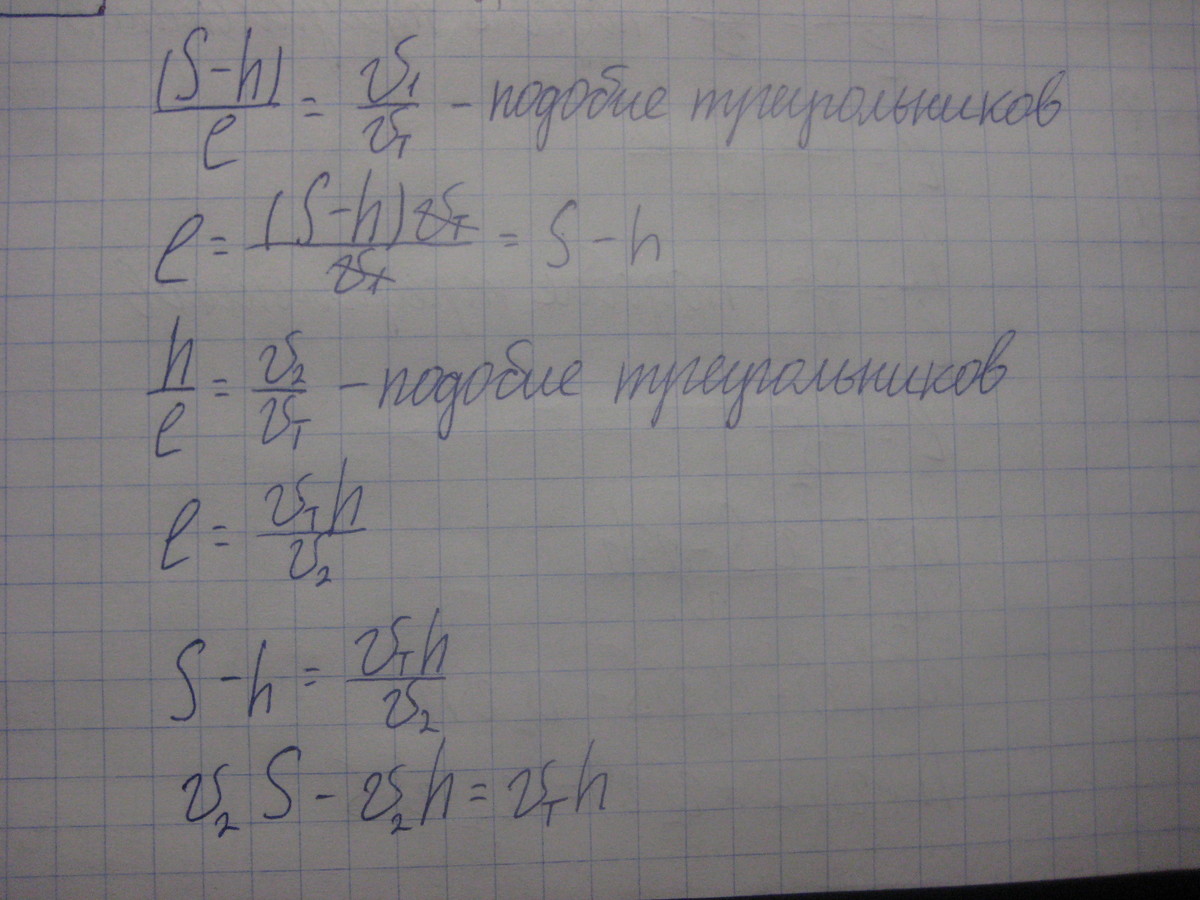 (S-h)/l = v₁/vₜ - подобие треугольников
l = (S-h)vₜ/v₁ = S-h
h/l = v₂/vₜ - подобие треугольников
l = vₜh/v₂
S-h = vₜh/v₂
v₂S - v₂h = vₜh